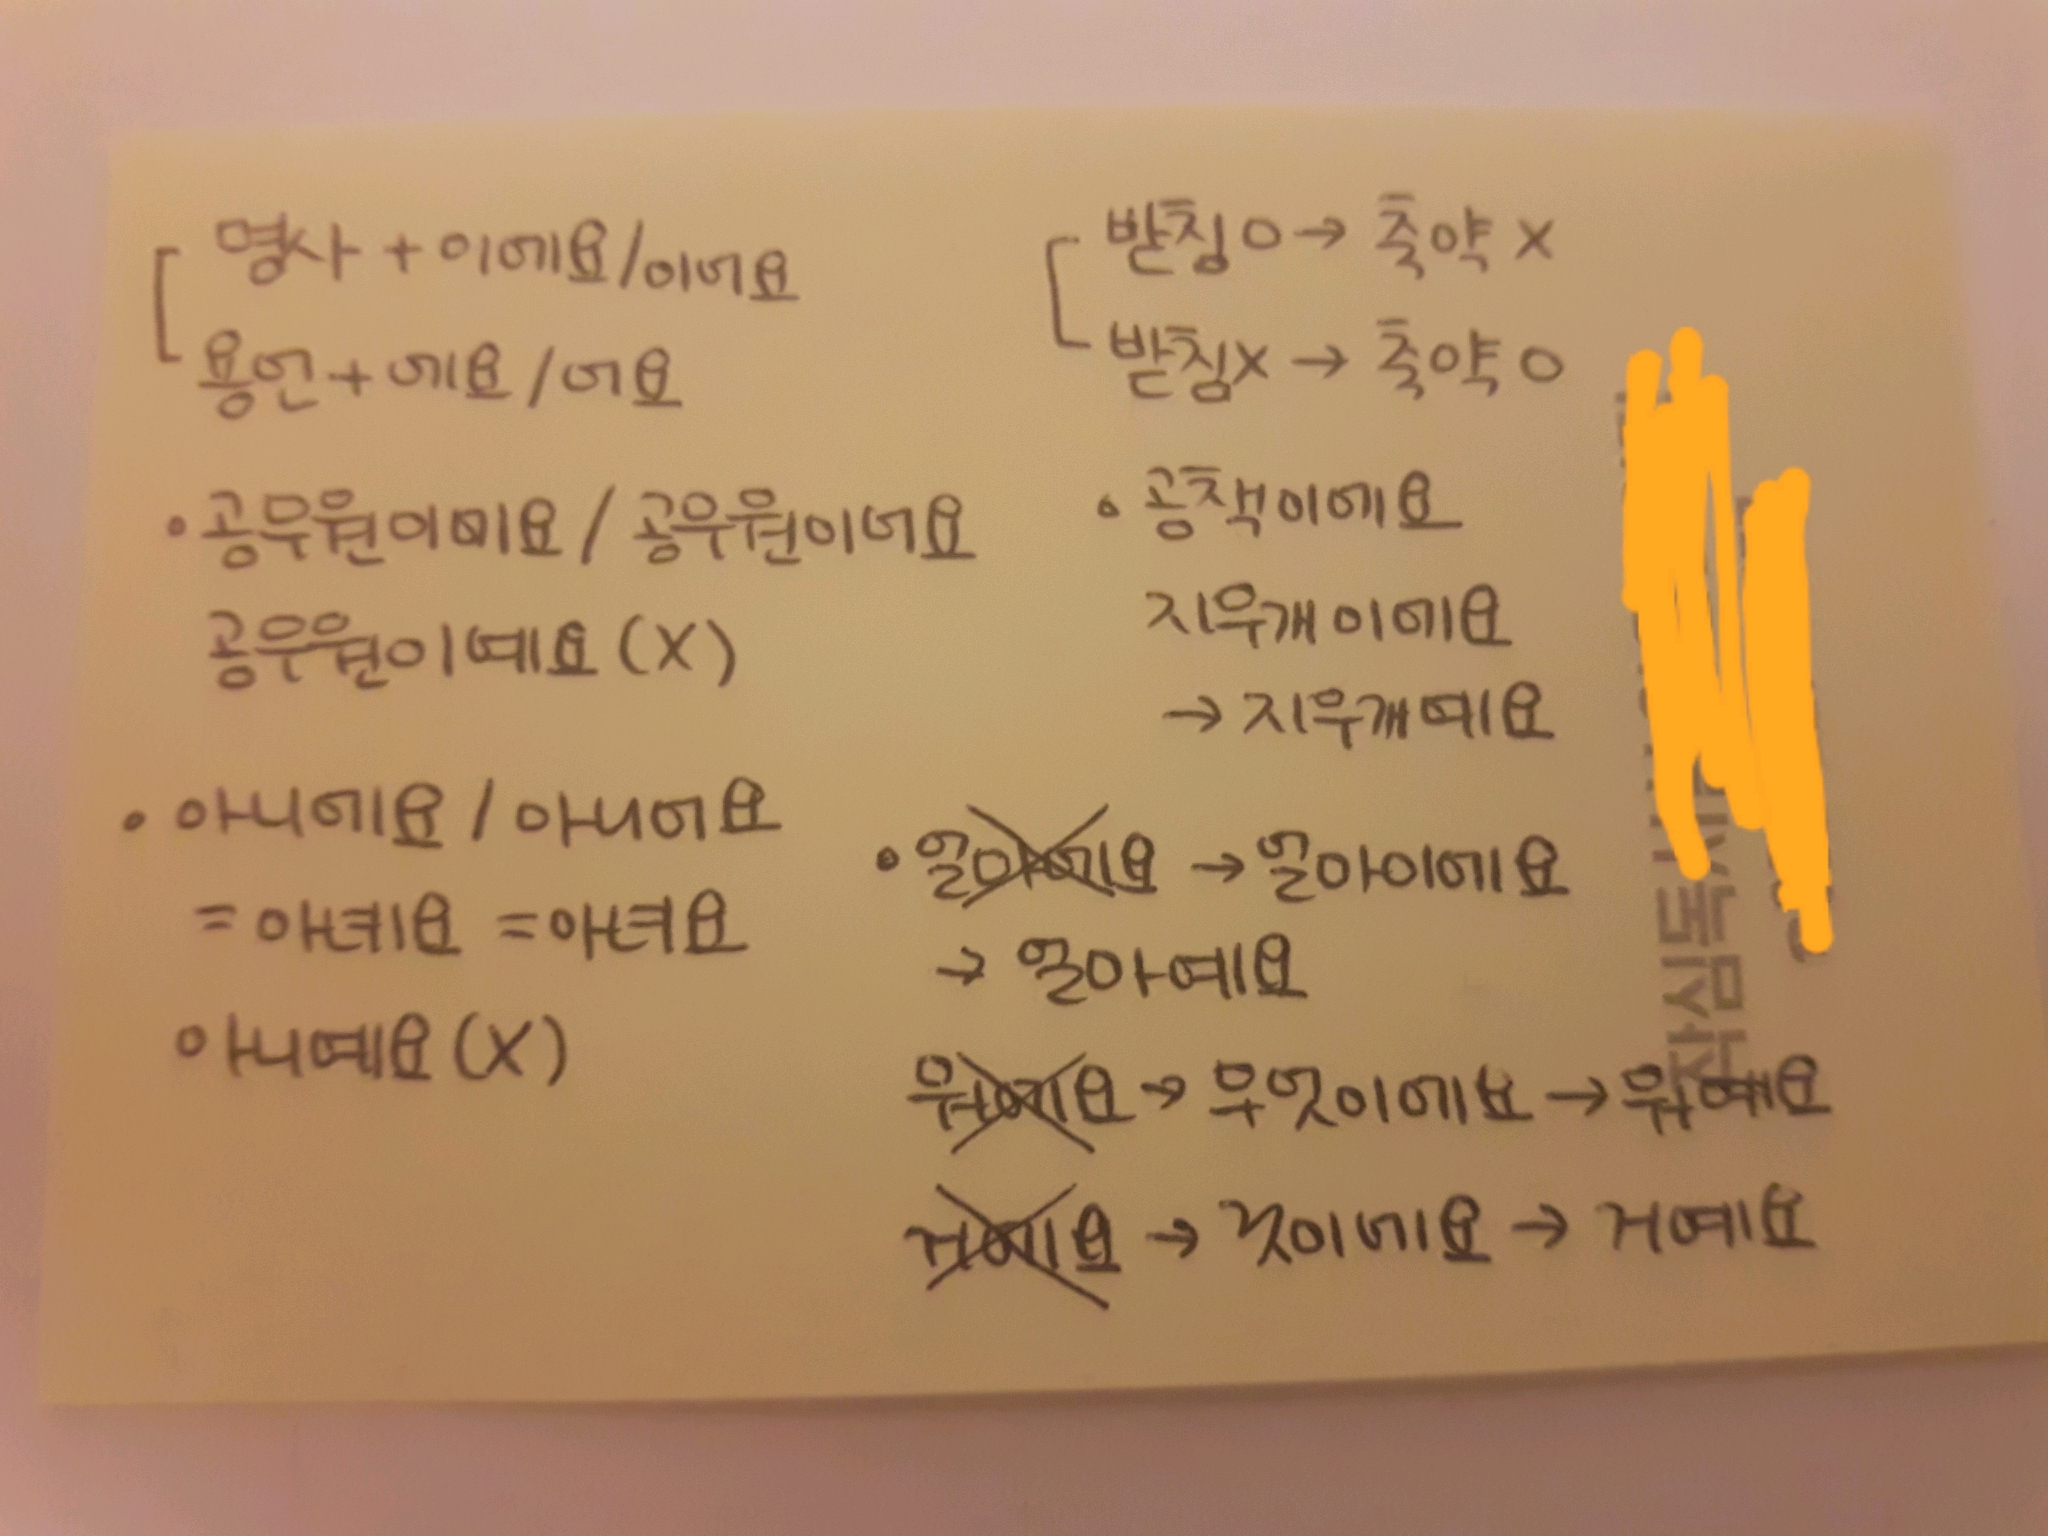 명사 + 이에요/이어요
용언 + 에요/어요
• 공무원이에요 / 공무원이어요
공무원이예요 (X)
• 아니에요 / 아니어요
= 아녜요 = 아녀요
아니예요 (X)
받침 O → 축약 X
받침 X → 축약 O
• 공책이에요
지우개이에요
→ 지우개예요
• 얼마에요 → 얼마이에요
→ 얼마예요
뭐에요 → 무엇이에요 → 뭐예요
거에요 → 것이에요 → 거예요